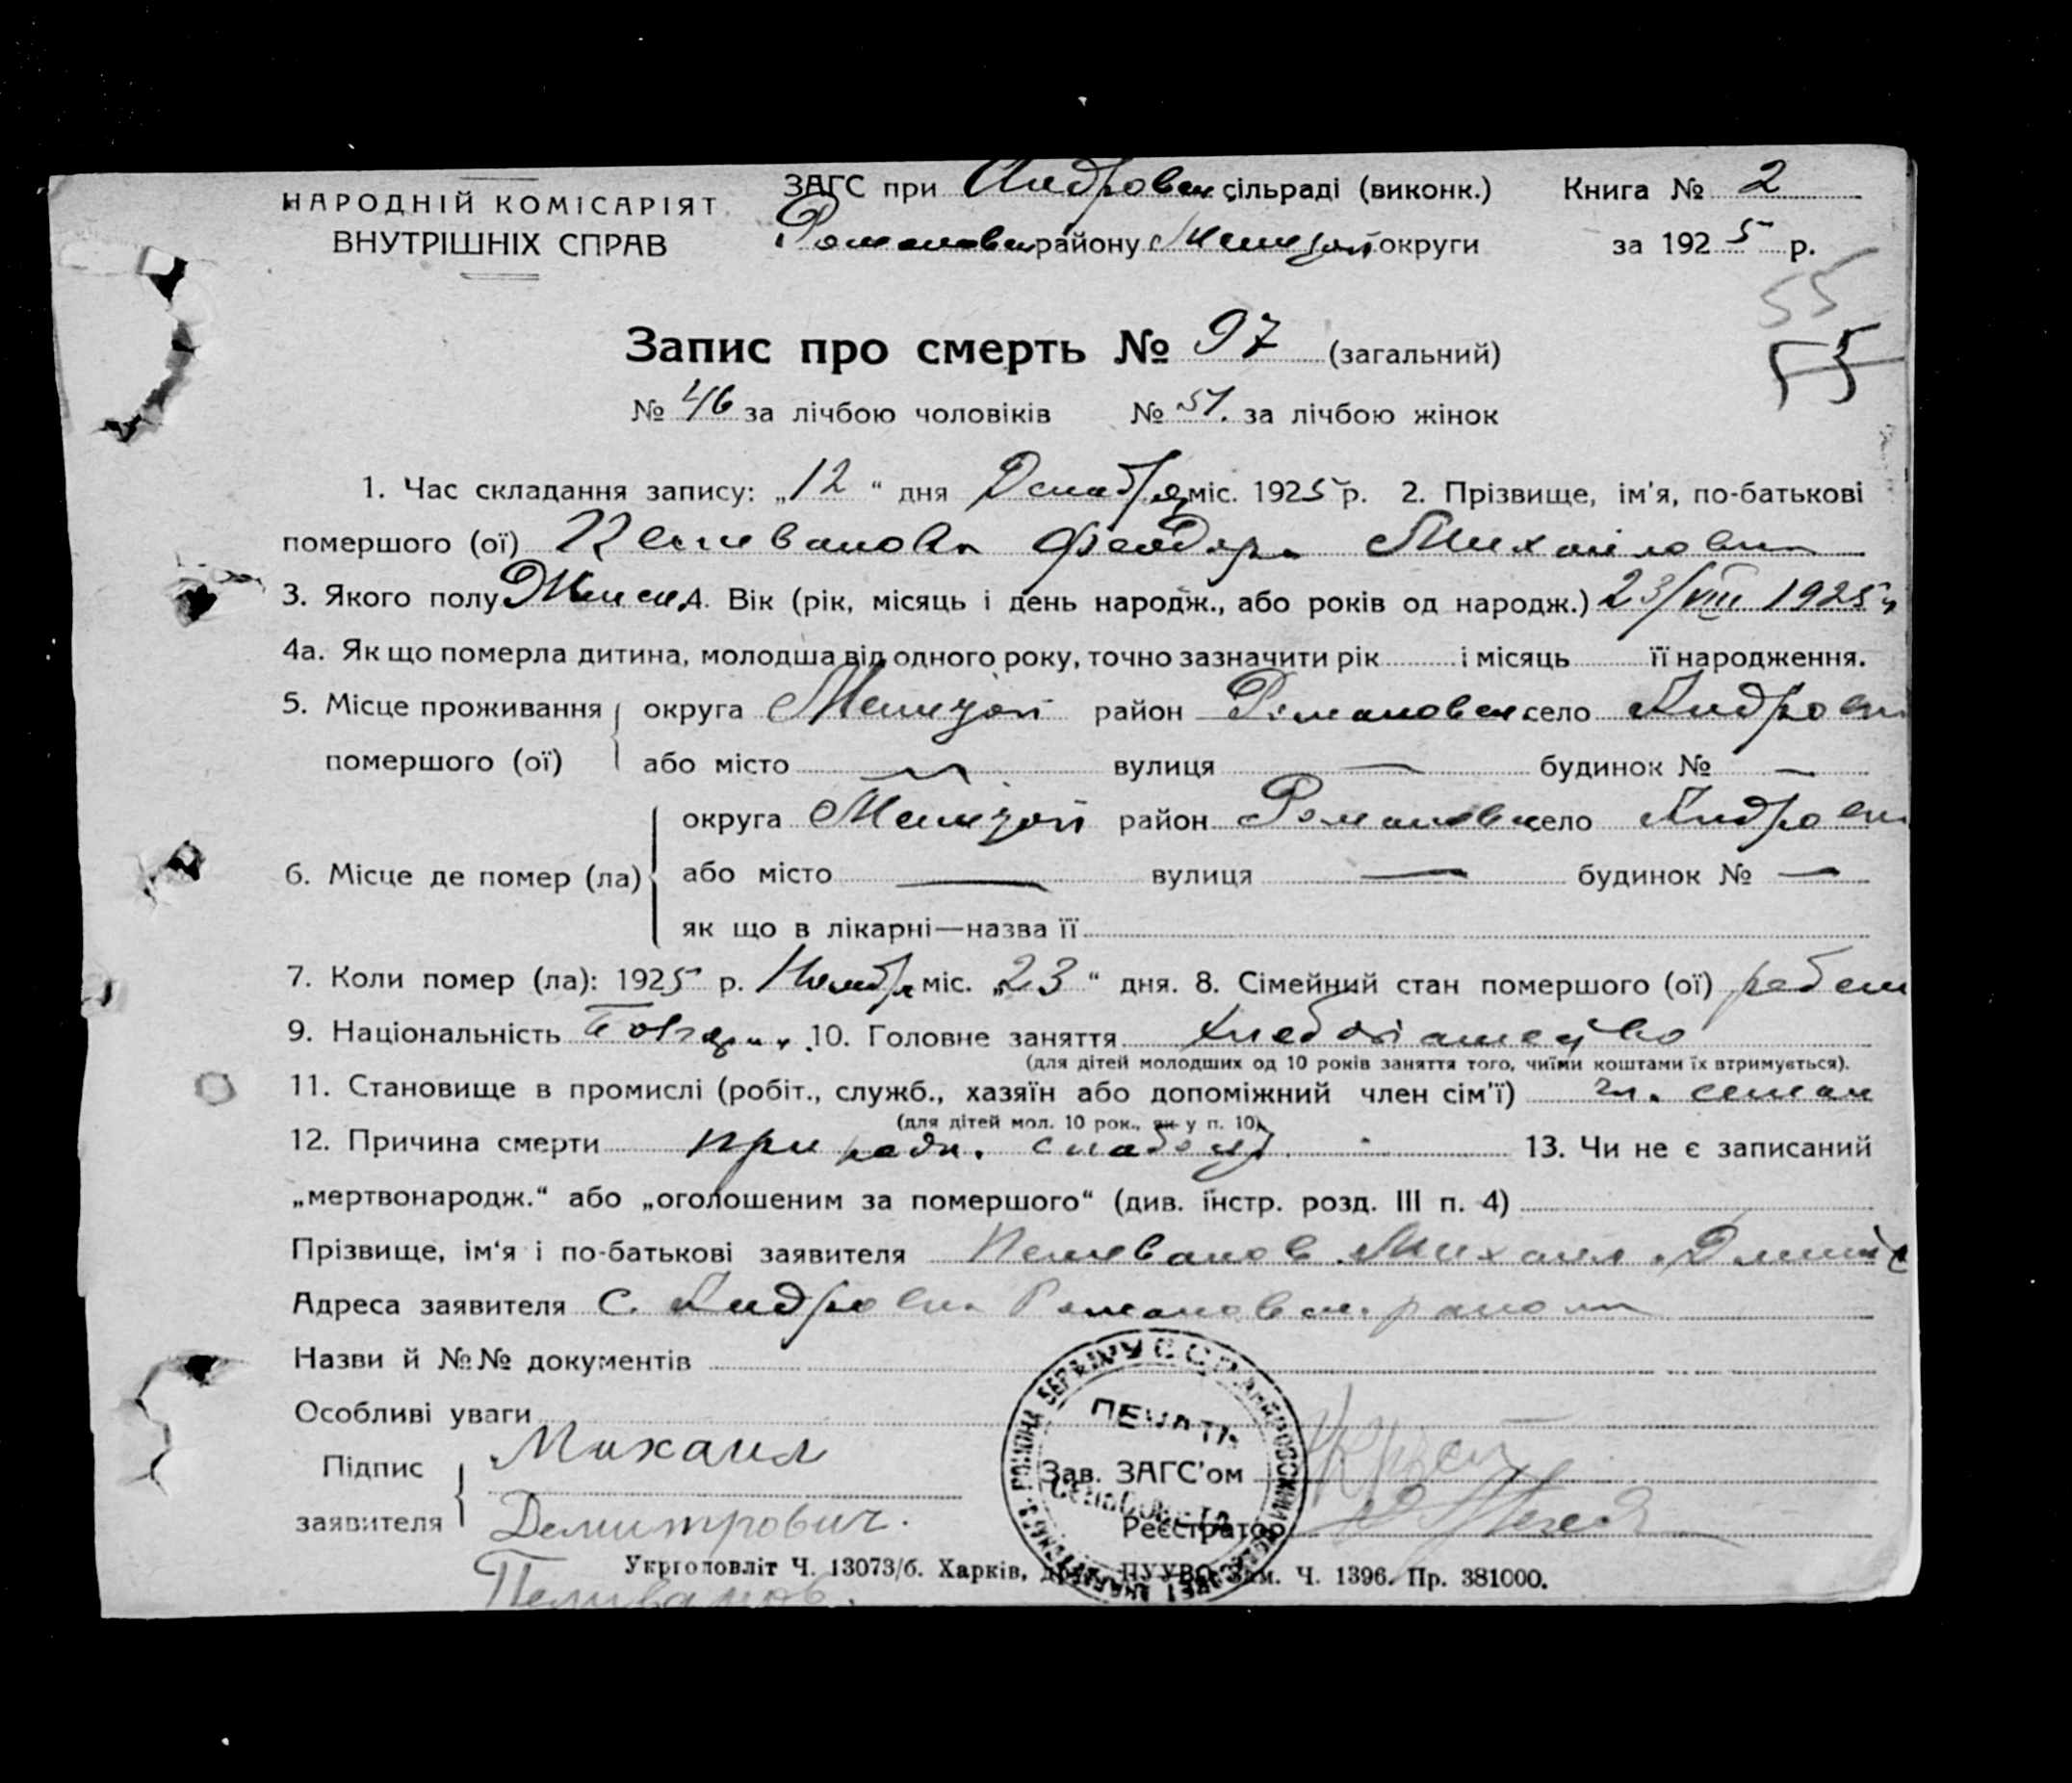 НАРОДНІЙ КОМІСАРІЯТ
ВНУТРІШНІХ СПРАВ
ЗАГС при Андровск сільраді (виконк.)
Романовск району Мелитоп округи
Книга № 2
за 1925 р.
55
55
Запис про смерть № 97 (загальний)
№ 46 за лічбою чоловіків № 51. за лічбою жінок
1. Час складання запису: „12“ дня Декабря міс. 1925 р. 2. Прізвище, ім'я, по-батькові
помершого (ої) Пеливанова Феодора Михайловна
3. Якого полу Женск 4. Вік (рік, місяць і день народж., або років од народж.) 23/VIII 1925 г
4а. Як що померла дитина, молодша від одного року, точно зазначити рік і місяць її народження.
5. Місце проживання помершого (ої) округа Мелитоп район Романовск село Андровк
або місто — вулиця — будинок № —
6. Місце де помер (ла) округа Мелитоп район Романовск село Андровк
або місто — вулиця — будинок № —
як що в лікарні—назва її
7. Коли помер (ла): 1925 р. Ноября міс. „23“ дня. 8. Сімейний стан помершого (ої) ребен
9. Національність Болгарин. 10. Головне заняття хлебопашество
(для дітей молодших од 10 років заняття того, чиїми коштами їх втримується).
11. Становище в промислі (робіт., служб., хазяїн або допоміжний член сім'ї) чл. семьи
(для дітей мол. 10 рок., як у п. 10)
12. Причина смерти при родн. слабост. 13. Чи не є записаний
„мертвонародж.“ або „оголошеним за помершого“ (див. інстр. розд. III п. 4)
Прізвище, ім'я і по-батькові заявителя Пеливанов Михаил Дмит
Адреса заявителя с. Андровка Романовск. района
Назви й №№ документів
Особливі уваги
Підпис заявителя Михаил
Демитрович.
Пеливанов.
ПЕЧАТЬ
Зав. ЗАГС'ом
Реєстратор
Укрголовліт Ч. 13073/б. Харків, друк. ПУУВО Зам. Ч. 1396. Пр. 381000.